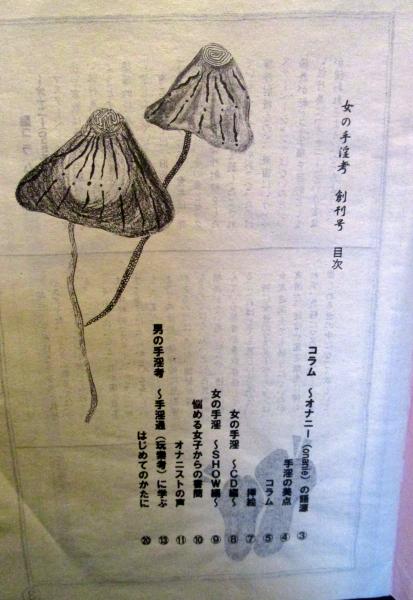 女の手淫考 創刊号 目次
コラム 〜オナニー(onanie)の語源 ③
手淫の美点 ④
コラム ⑤
挿絵 ⑦
女の手淫 〜CD編〜 ⑧
女の手淫 〜SHOW編〜 ⑨
悩める女子からの書簡 ⑩
オナニストの声 ⑪
男の手淫考 〜手淫通(玩楽考)に学ぶ ⑬
はじめてのかたに ⑳